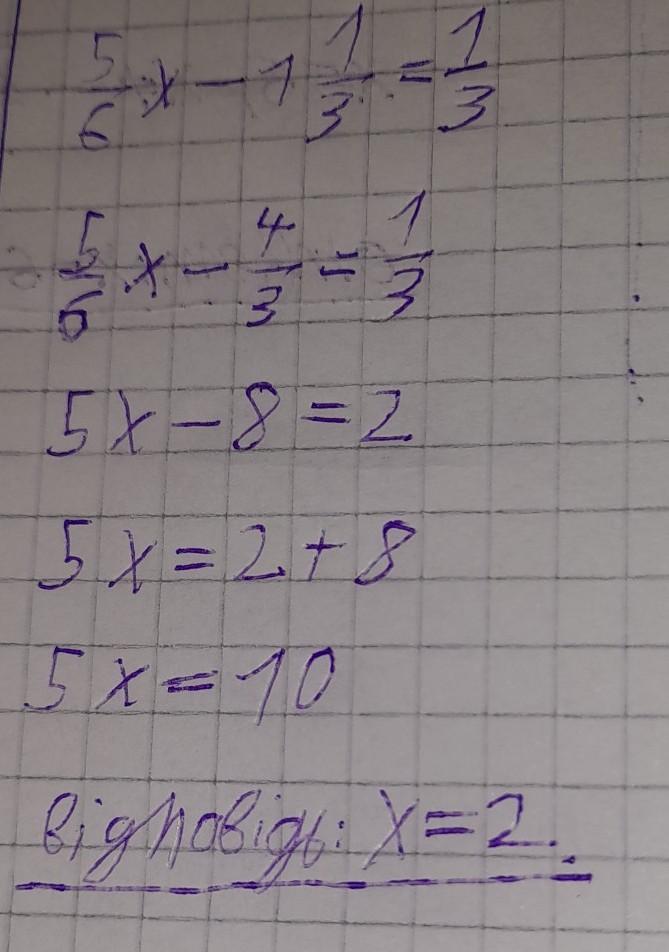 5/6 x - 1 1/3 = 1/3
5/6 x - 4/3 = 1/3
5x - 8 = 2
5x = 2 + 8
5x = 10
відповідь: x = 2.